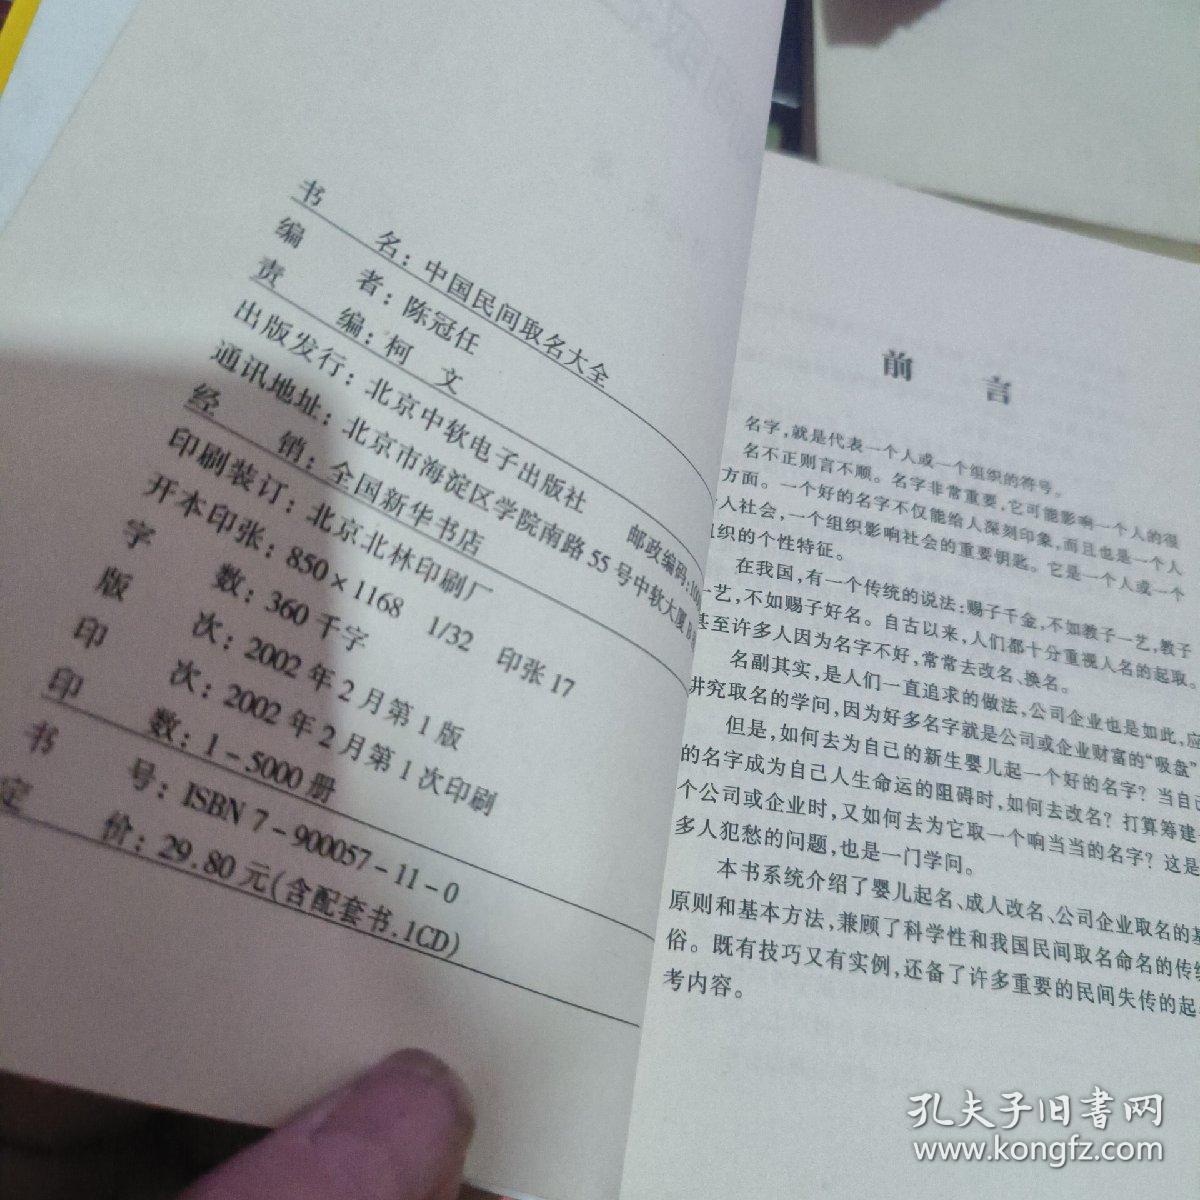 书 名：中国民间取名大全
编 者：陈冠任
责 编：柯 文
出版发行：北京中软电子出版社
通讯地址：北京市海淀区学院南路55号中软大厦
邮政编码：
经 销：全国新华书店
印刷装订：北京北林印刷厂
开本印张：850×1168 1/32 印张17
字 数：360千字
版 次：2002年2月第1版
印 次：2002年2月第1次印刷
印 数：1-5000册
书 号：ISBN 7-900057-11-0
定 价：29.80元(含配套书.1CD)
前 言
名字，就是代表一个人或一个组织的符号。
名不正则言不顺。名字非常重要，它可能影响一个人的很
方面。一个好的名字不仅能给人深刻印象，而且也是一个人
人社会，一个组织影响社会的重要钥匙。它是一个人或一个
组织的个性特征。
在我国，有一个传统的说法：赐子千金，不如教子一艺，教子
一艺，不如赐子好名。自古以来，人们都十分重视人名的起取。
甚至许多人因为名字不好，常常去改名、换名。
名副其实，是人们一直追求的做法，公司企业也是如此，应
讲究取名的学问，因为好多名字就是公司或企业财富的“吸盘”
但是，如何去为自己的新生婴儿起一个好的名字？当自己
的名字成为自己人生命运的阻碍时，如何去改名？打算筹建
个公司或企业时，又如何去为它取一个响当当的名字？这是
多人犯愁的问题，也是一门学问。
本书系统介绍了婴儿起名、成人改名、公司企业取名的基
原则和基本方法，兼顾了科学性和我国民间取名命名的传统
俗。既有技巧又有实例，还备了许多重要的民间失传的起
考内容。
孔夫子旧书网
www.kongfz.com